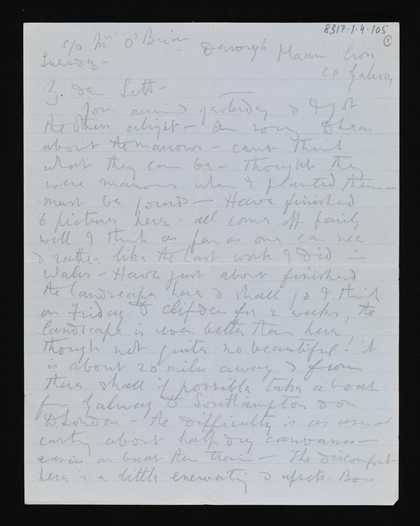 8317-1-4-105
1
c/o Mrs O'Brien Derroogh Maam Cross
Tuesday - Co Galway
My dear Sett -
Yours arrived yesterday & I got
the others alright - Am sorry to hear
about the marrows - cant think
what they can be - thought they
were marrows when I planted them -
must be gourds - Have finished
6 pictures here - all come off fairly
well I think as far as one can see
& rather like the last work I did in
Wales - Have just about finished
the landscapes here & shall go I think
on Friday to Clifden for 2 weeks, the
landscape is even better than here
though not quite so beautiful! it
is about 20 miles away & from
there shall if possible take a boat
from Galway to Southampton & on
to London - the difficulty is as usual
carting about half dry canvases -
easier on boat than train - The discomfort
here is a little enervating & upsets